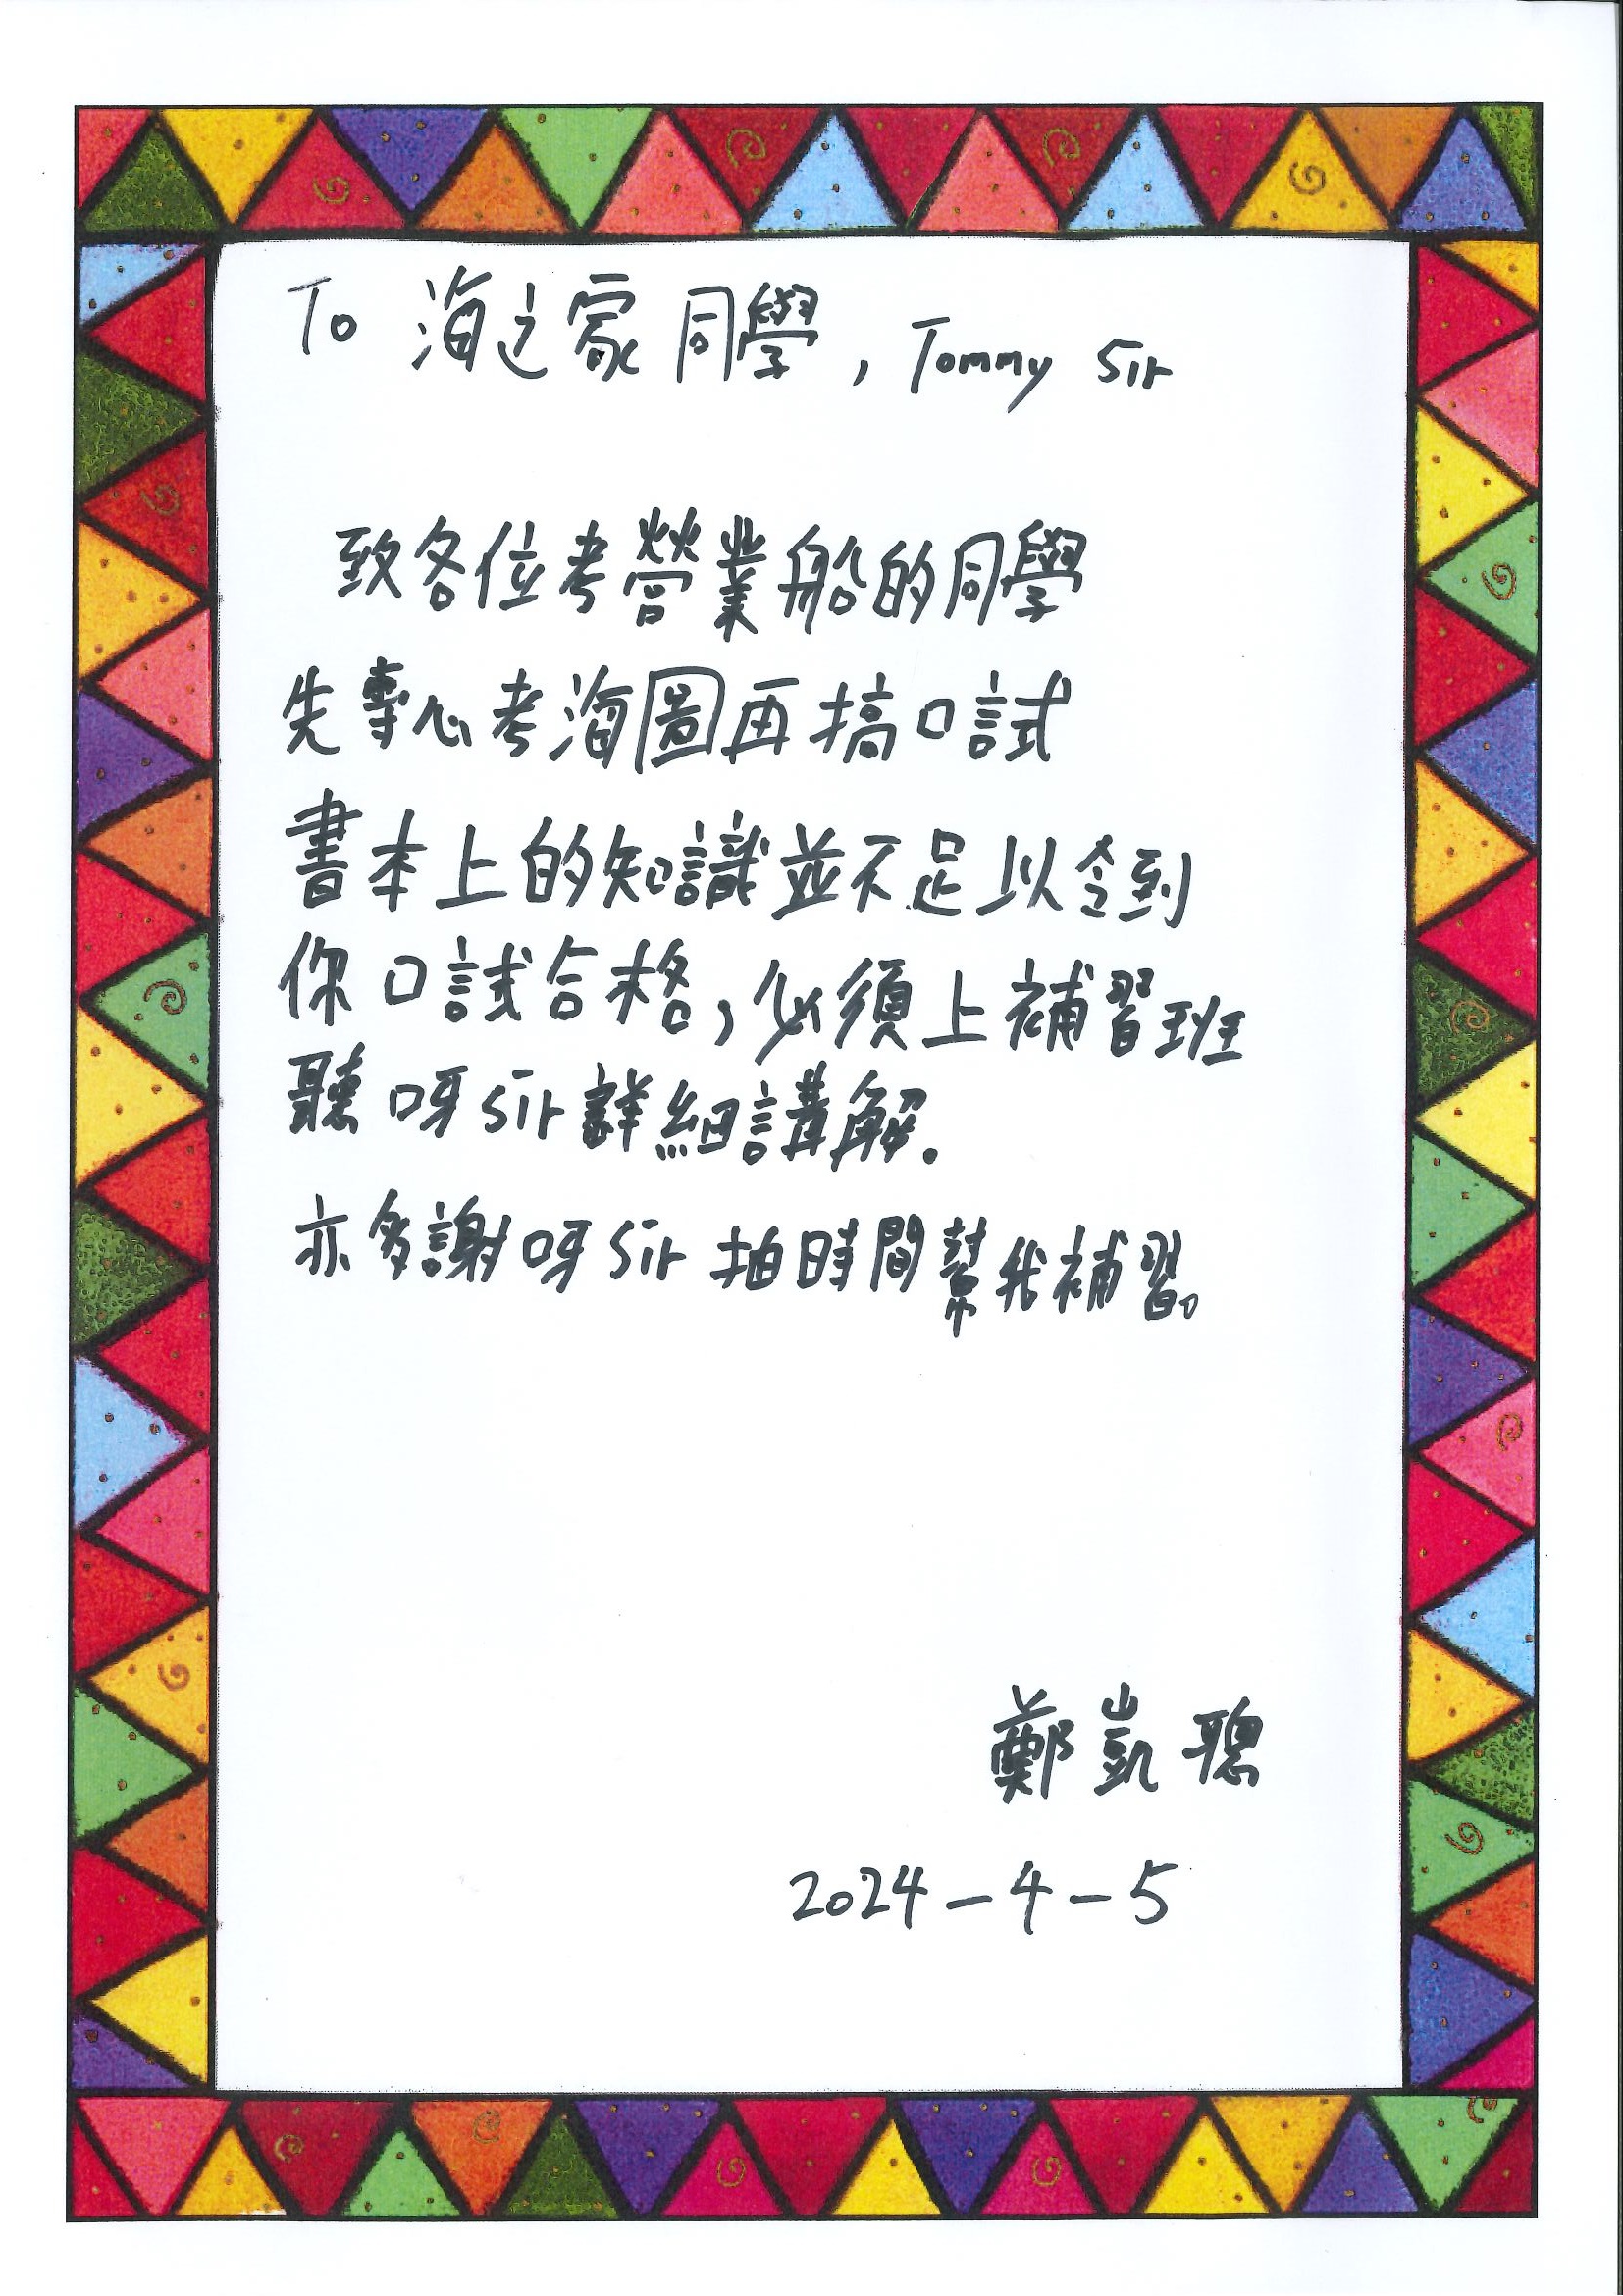 To 海之家同學, Tommy Sir
致各位考營業船的同學
先專心考海圖再搞口試
書本上的知識並不足以令到
你口試合格,必須上補習班
聽呀sir詳細講解.
亦多謝呀Sir 抽時間幫我補習。
鄭凱聰
2024-4-5